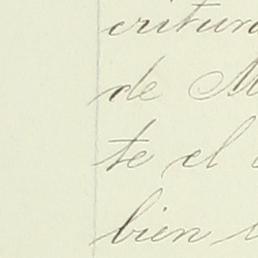 critura
de M
te el
bien